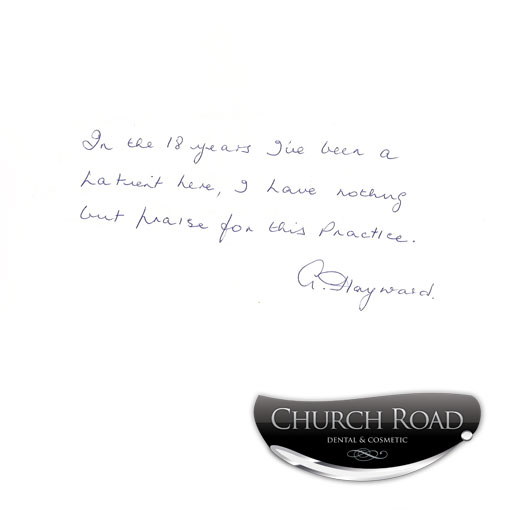 In the 18 years I've been a
patient here, I have nothing
but praise for this Practice.
G. Hayward.
CHURCH ROAD
DENTAL & COSMETIC